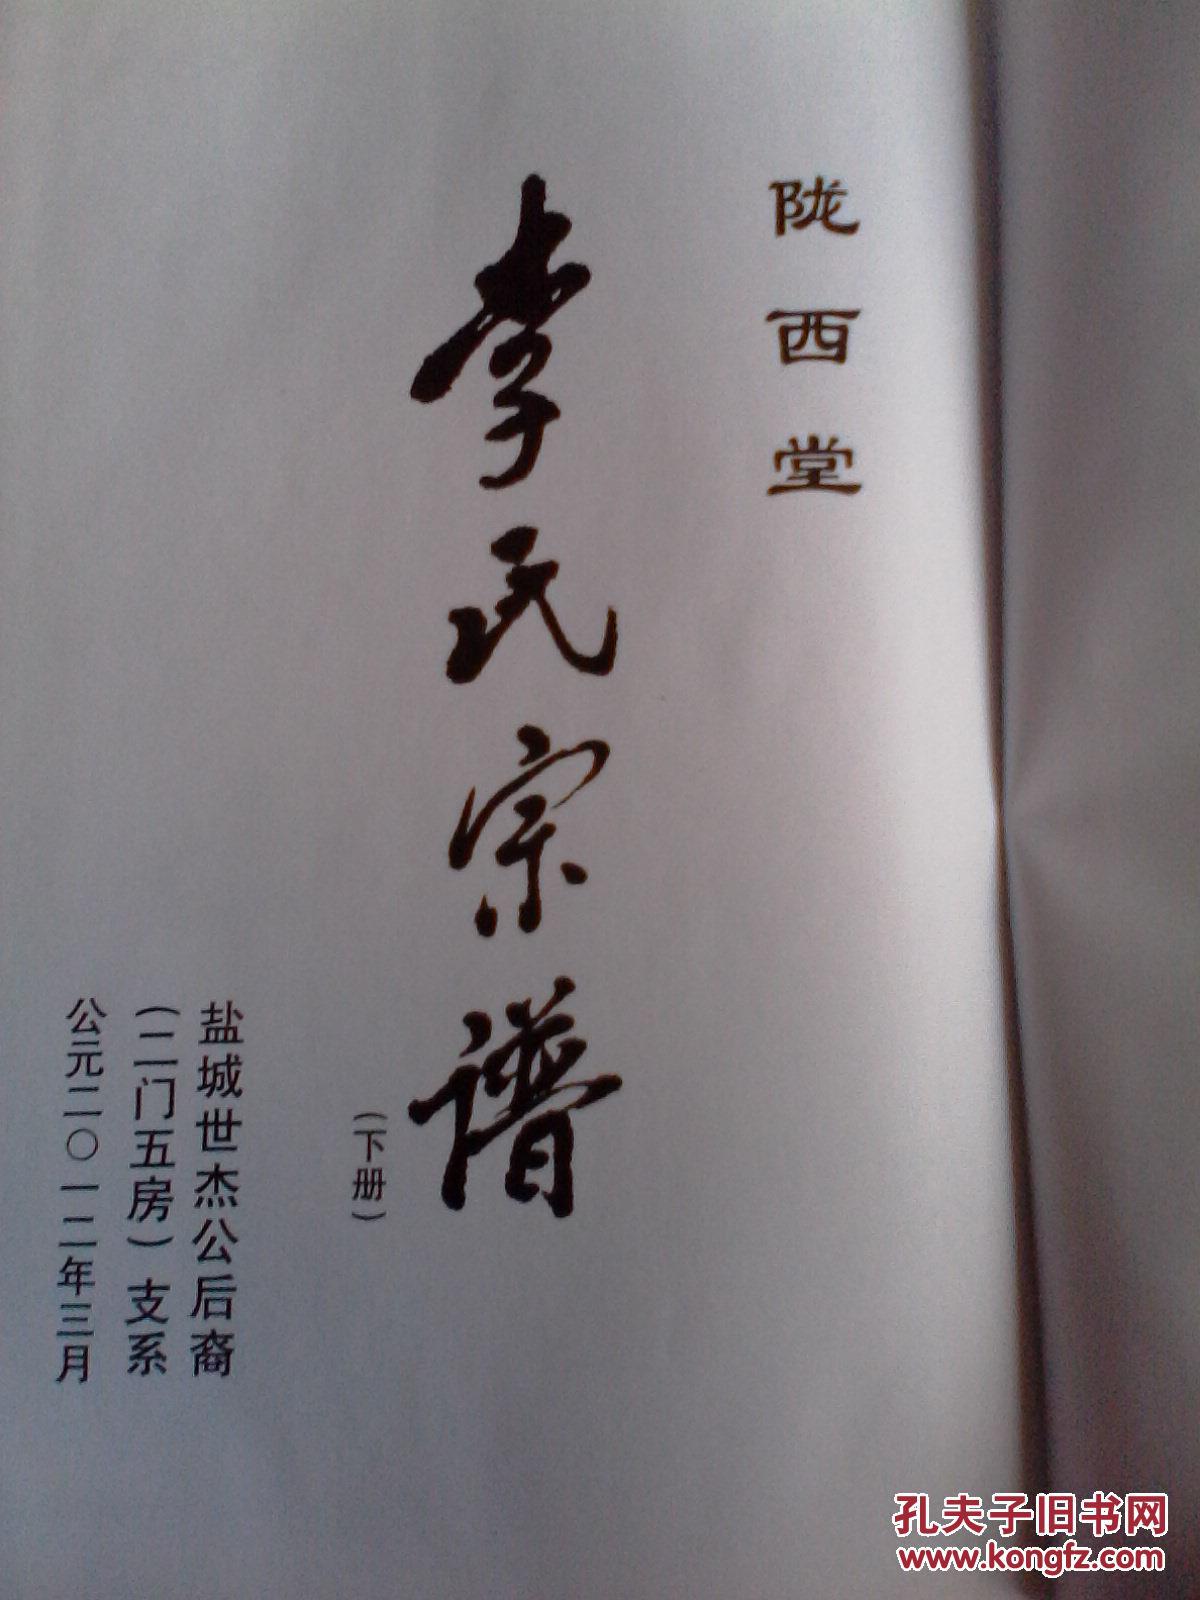 陇西堂
李氏宗谱
（下册）
盐城世杰公后裔
（二门五房）支系
公元二〇一二年三月
孔夫子旧书网
www.kongfz.com